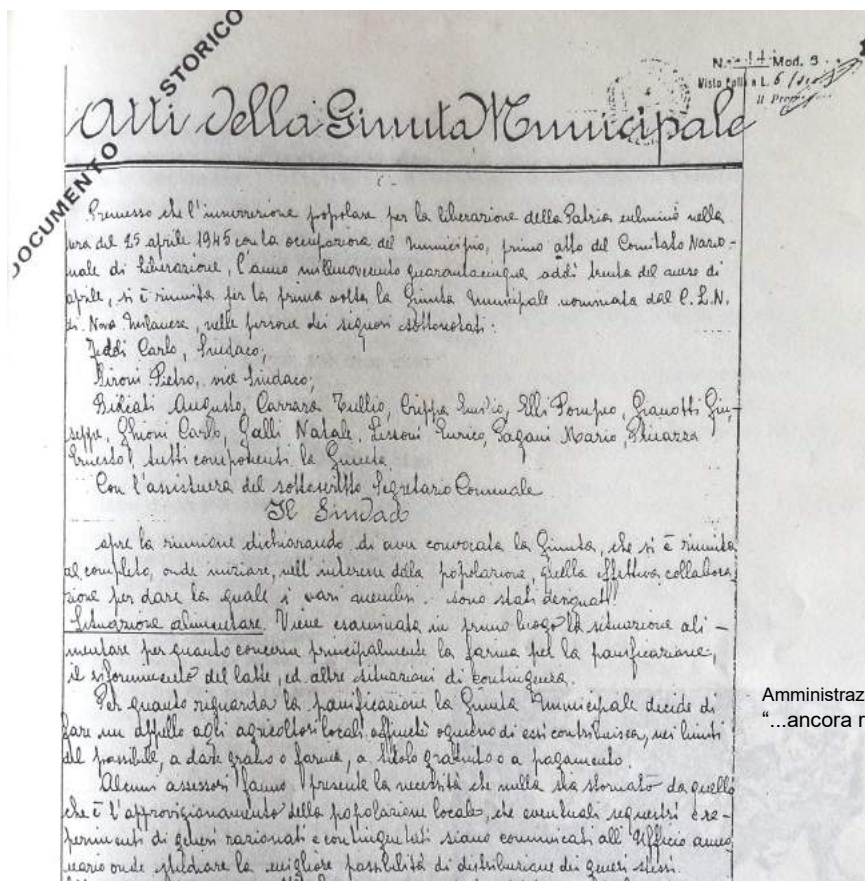 DOCUMENTO STORICO
N. 14 Mod. 5
Visto
Il
Atti della Giunta Municipale
Premesso che l'insurrezione popolare per la liberazione della Patria culminò nella
sera del 25 aprile 1945 con la occupazione del Municipio, primo atto del Comitato Nazio-
nale di Liberazione, l'anno millenovecento quarantacinque addì trenta del mese di
aprile, si è riunita per la prima volta la Giunta Municipale nominata dal C.L.N.
di Nova Milanese, nelle persone dei signori sottonotati:
Carlo, Sindaco;
Pietro, vice Sindaco;
Augusto, Carrara Tullio, Crippa Emilio, Elli Pompeo, Gianotti Giu-
seppe, Ghioni Carlo, Galli Natale, Lissoni Enrico, Pagani Mario,
Ernesto, tutti componenti la Giunta.
Con l'assistenza del sottoscritto Segretario Comunale
Il Sindaco
apre la riunione dichiarando di aver convocata la Giunta, che si è riunita
al completo, onde iniziare, nell'interesse della popolazione, quella effettiva collabora-
zione per dare la quale i vari membri sono stati designati.
Situazione alimentare. Viene esaminata in primo luogo la situazione ali-
mentare per quanto concerne principalmente la farina per la panificazione,
il rifornimento del latte, ed altre situazioni di contingenza.
Per quanto riguarda la panificazione la Giunta Municipale decide di
fare un appello agli agricoltori locali affinchè ognuno di essi contribuisca, nei limiti
del possibile, a dare grano o farina, a titolo gratuito o a pagamento.
Alcuni assessori fanno presente la necessità che nulla sia stornato da quello
che è l'approvigionamento della popolazione locale, che eventuali sequestri e re-
perimenti di generi razionati e contingentati siano comunicati all'Ufficio anno-
nario onde studiare la migliore possibilità di distribuzione dei generi stessi.
Amministraz
“...ancora r